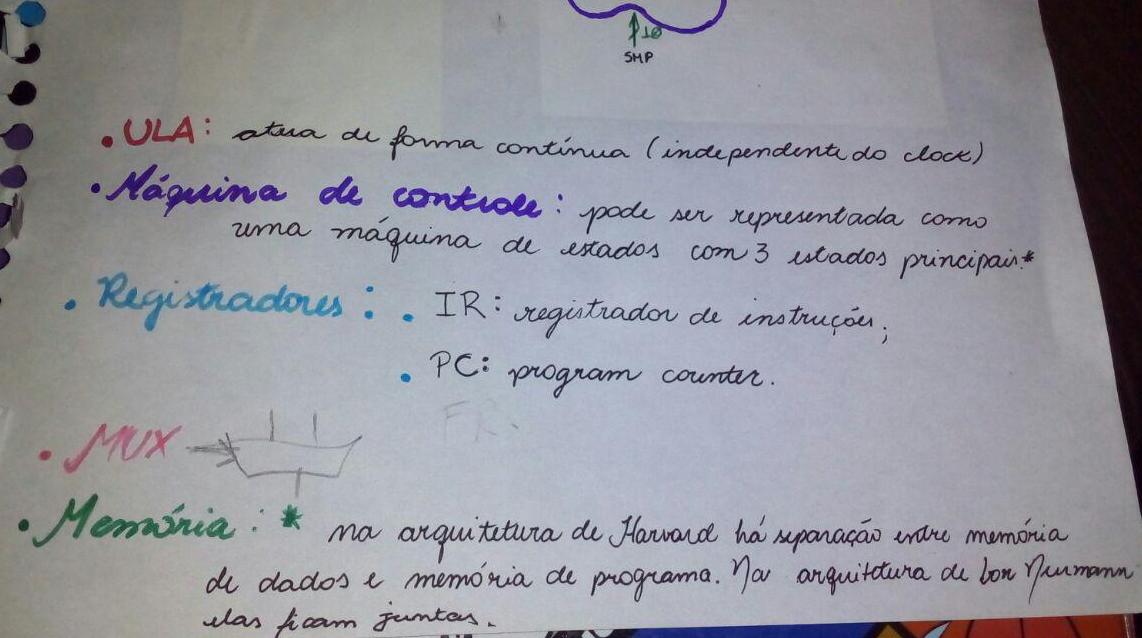 10
SMP
• ULA: atua de forma contínua (independente do clock)
• Máquina de controle: pode ser representada como
uma máquina de estados com 3 estados principais.*
• Registradores: • IR: registrador de instruções;
• PC: program counter.
FR.
• MUX
• Memória: * na arquitetura de Harvard há separação entre memória
de dados e memória de programa. Na arquitetura de Von Neumann
elas ficam juntas.